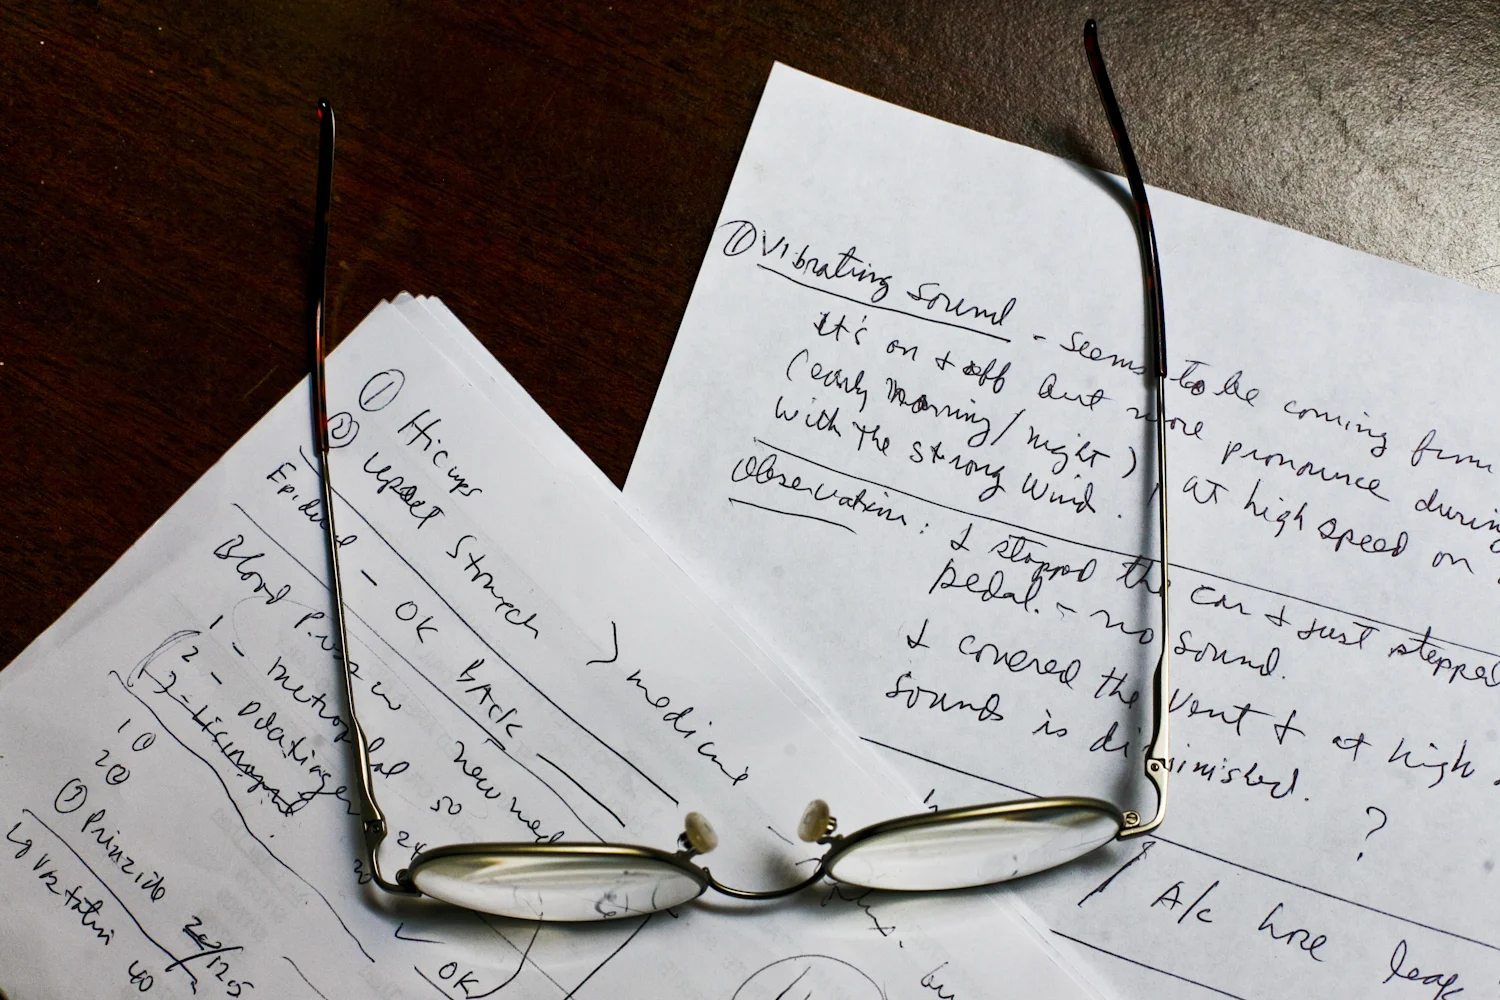 ① Hicups
② Upset Stomach > medicine
Epidural - OK BACK
Blood Pressure new med
1 - metropolal 50
2 - Dilatiazer 24
3 - Lisinopril 20
1 ①
2 ②
② Prinzide 20/125
40
OK
① Vibrating sound - seems to be coming from
It's on & off but more pronounce during
(early morning/night) / at high speed on
with the strong wind.
Observation: I stopped the car & just stepped
pedal. - no sound.
I covered the vent & at high
sounds is diminished.
?
A/c hose leak